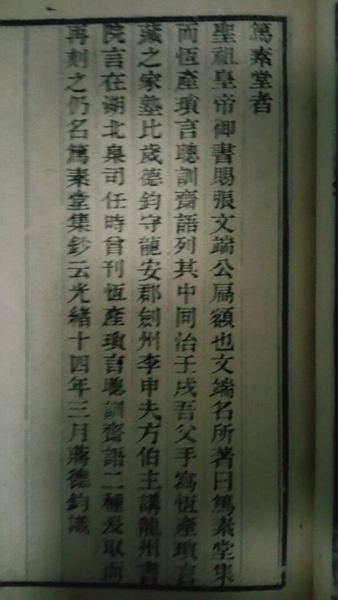 篤素堂者
聖祖皇帝御書賜張文端公扁額也文端名所著曰篤素堂集
而恆產瑣言聰訓齋語列其中同治壬戌吾父手寫恆產瑣言
藏之家塾比歲德鈞守龍安郡劍州李申夫方伯主講龍州書
院言在湖北臬司任時曾刊恆產瑣言聰訓齋語二種爰取而
再刻之仍名篤素堂集鈔云光緒十四年三月蔣德鈞識